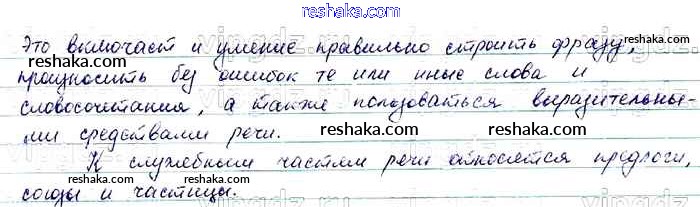 reshaka.com
Это включает и умение правильно строить фразу,
reshaka.com
произносить без ошибок те или иные слова и
словосочитания, а также пользоваться выразительны-
reshaka.com
ми средствами речи. reshaka.com reshaka.com
К служебным частям речи относятся предлоги,
reshaka.com reshaka.com
союзы и частицы.
reshaka.com